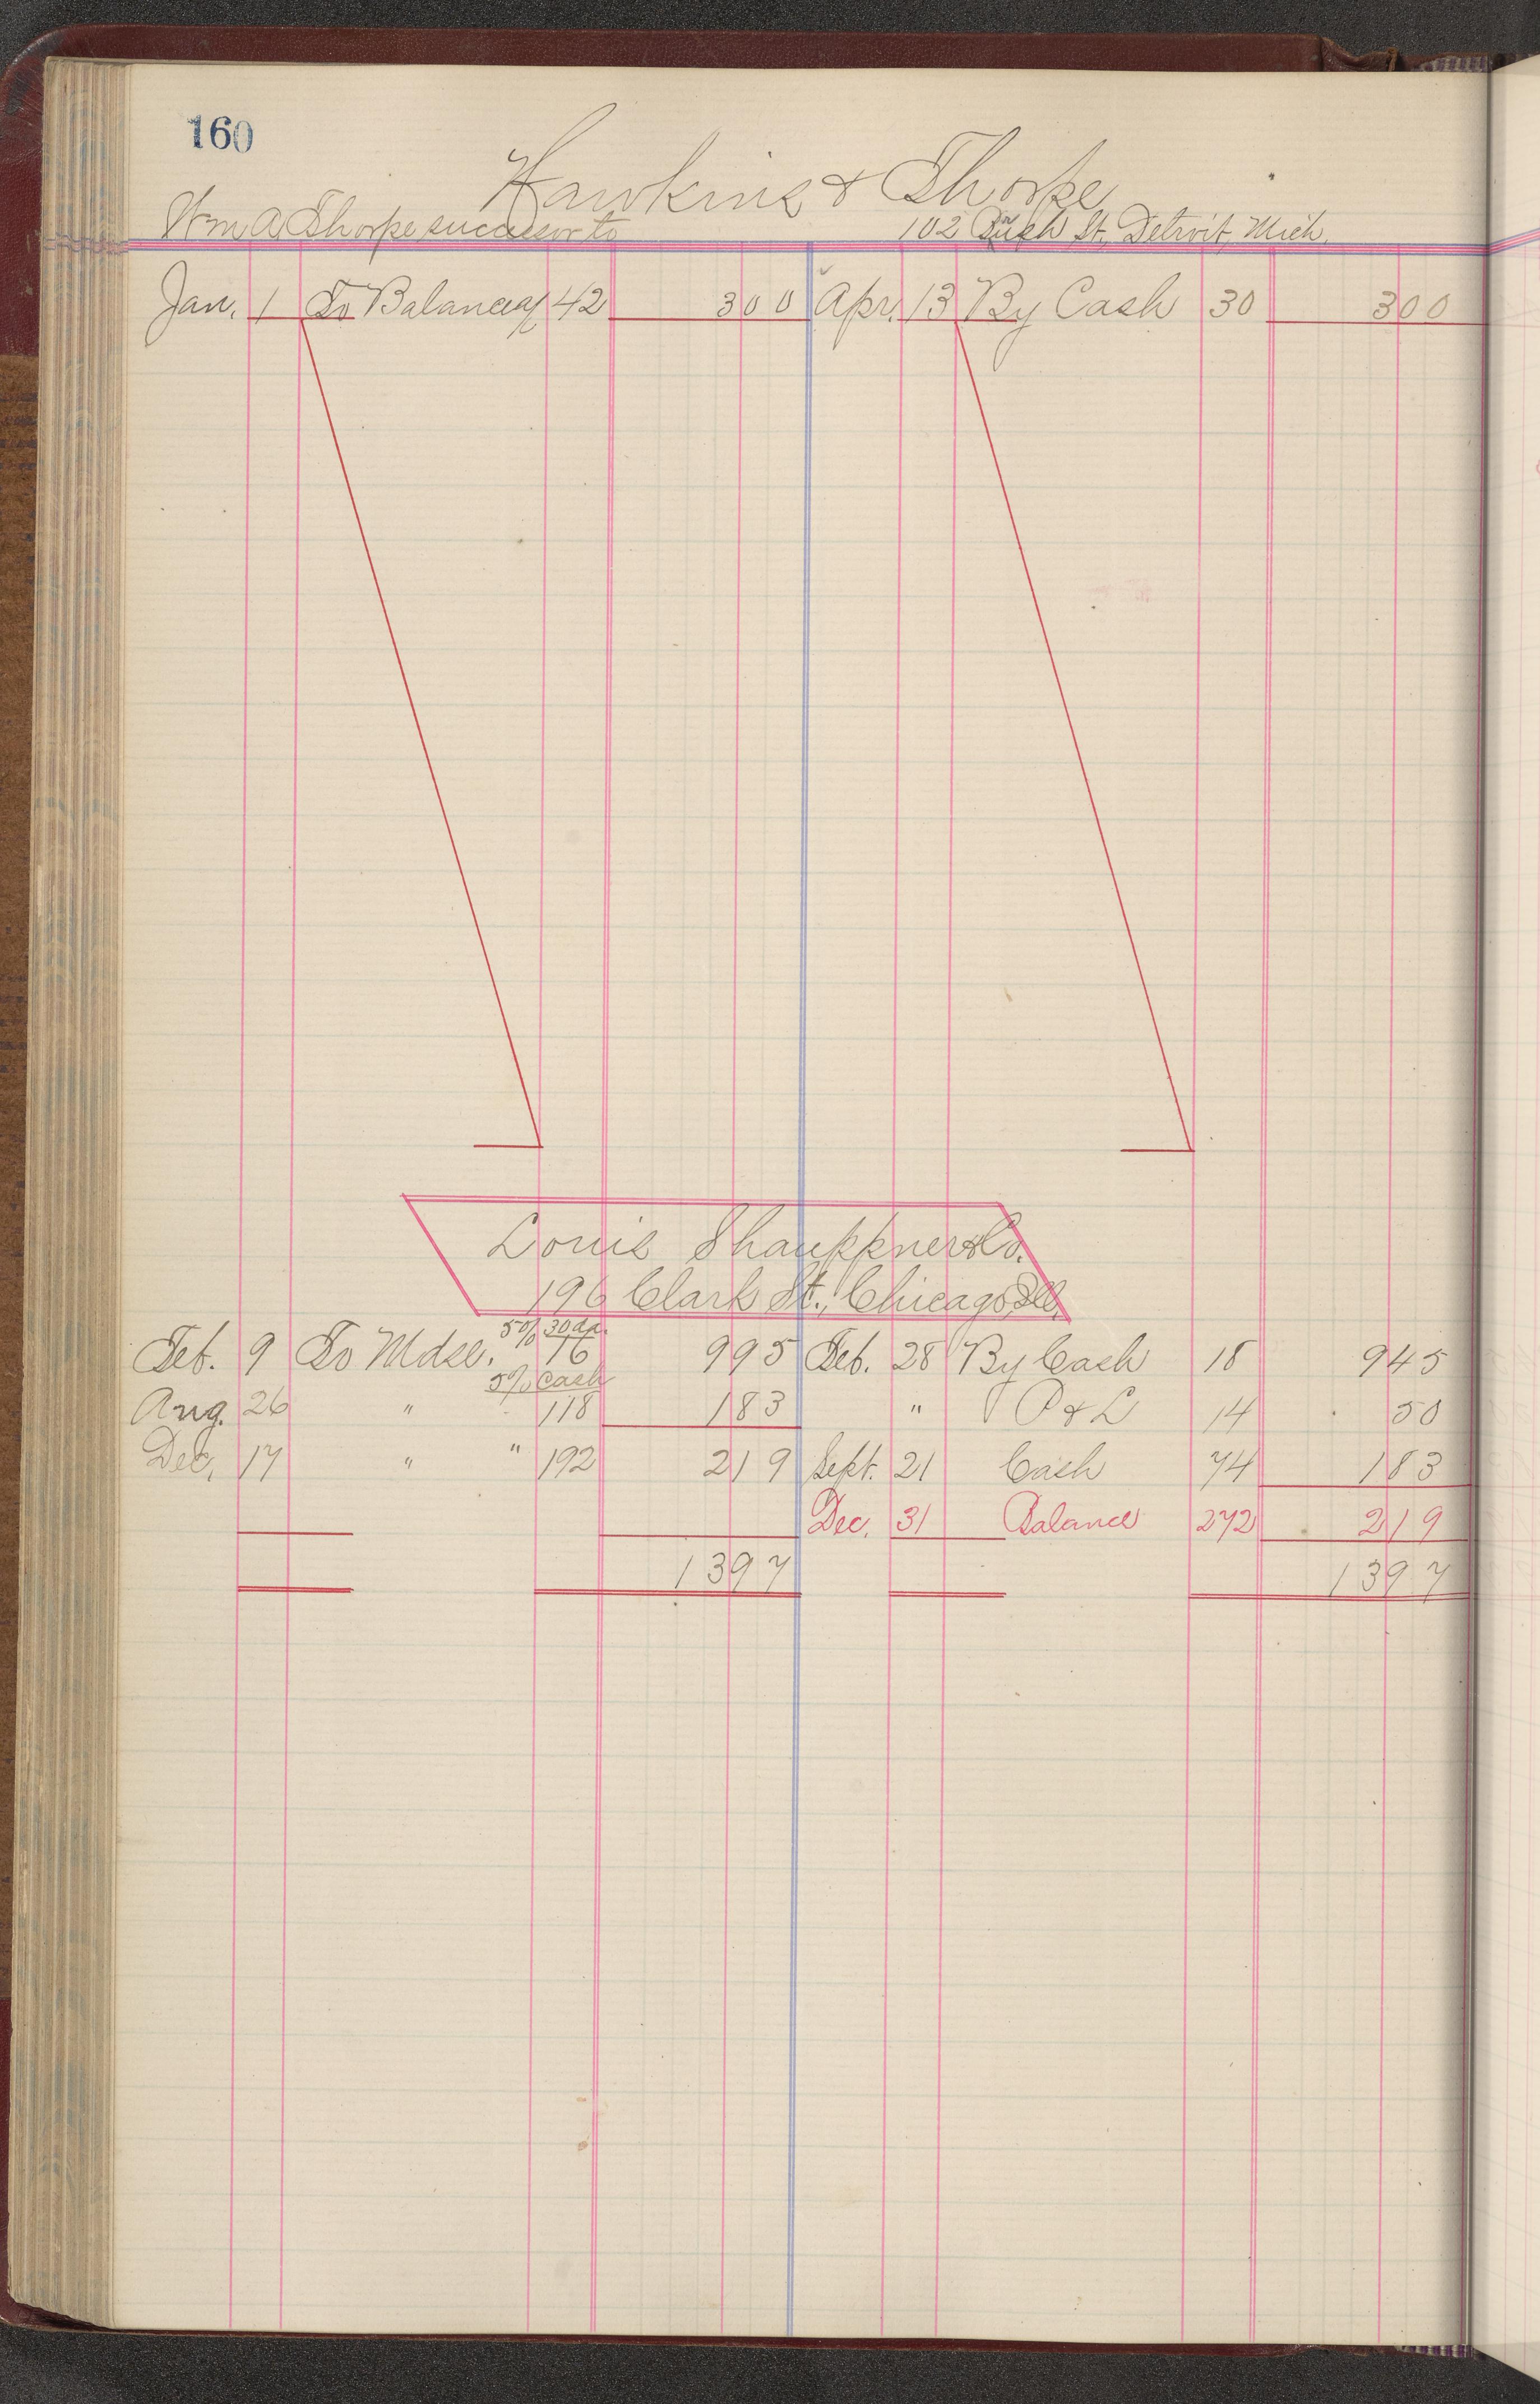 160
Hawkins & Thorpe
Wm A Thorpe successor to 102 St., Detroit, Mich.
Jan. 1 To Balance of 42 300 Apr. 13 By Cash 30 300
Louis Shauppner & Co.
196 Clark St., Chicago, Ill.
5% 30 da.
Feb. 9 To Mdse. 16 995 Feb. 28 By Cash 18 945
5% Cash
Aug. 26 " 118 183 " P & L 14 50
Dec. 17 " " 192 219 Sept. 21 Cash 74 183
Dec. 31 Balance 272 219
1397 1397